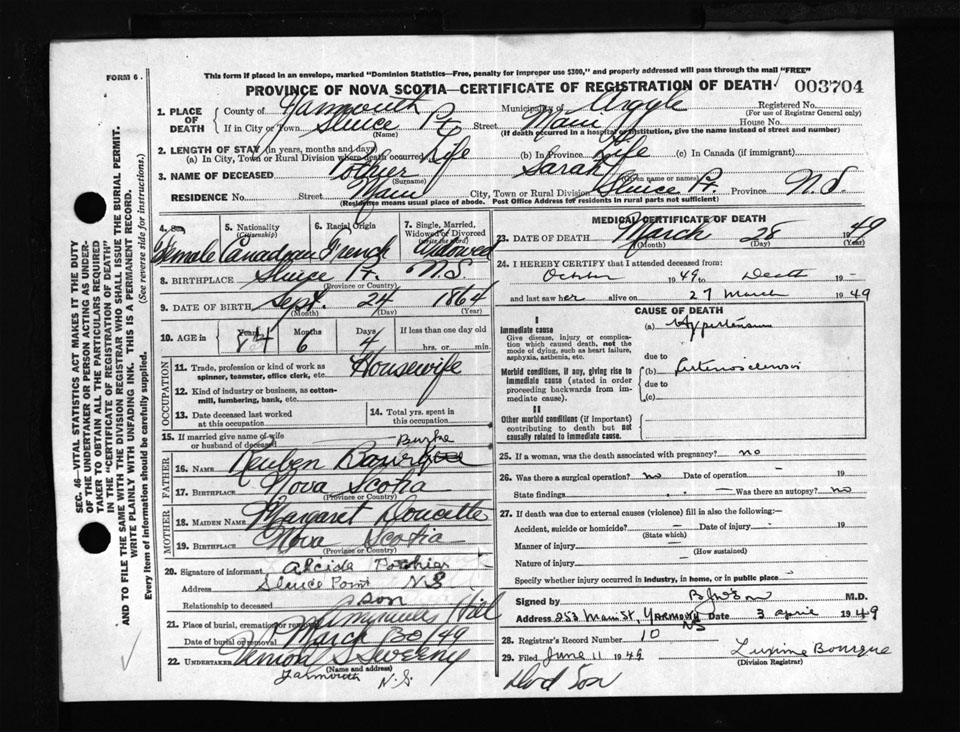 FORM 6.
This form if placed in an envelope, marked "Dominion Statistics—Free, penalty for improper use $300," and properly addressed will pass through the mail "FREE"
PROVINCE OF NOVA SCOTIA—CERTIFICATE OF REGISTRATION OF DEATH 003704
SEC. 46—VITAL STATISTICS ACT MAKES IT THE DUTY
OF THE UNDERTAKER OR PERSON ACTING AS UNDER-
TAKER TO OBTAIN ALL THE PARTICULARS REQUIRED
IN THE "CERTIFICATE OF REGISTRATION OF DEATH"
AND TO FILE THE SAME WITH THE DIVISION REGISTRAR WHO SHALL ISSUE THE BURIAL PERMIT.
WRITE PLAINLY WITH UNFADING INK. THIS IS A PERMANENT RECORD.
Every item of information should be carefully supplied. (See reverse side for instructions.)
1. PLACE OF DEATH County of Yarmouth Municipality of Argyle Registered No.
(For use of Registrar General only)
If in City or Town Sluice Pt Street Main House No.
(Name) (If death occurred in a hospital or institution, give the name instead of street and number)
2. LENGTH OF STAY (in years, months and days)
(a) In City, Town or Rural Division where death occurred Life (b) In Province Life (c) In Canada (if immigrant)
3. NAME OF DECEASED Pothier Sarah
(Surname) (Given name or names)
RESIDENCE No. Street Main City, Town or Rural Division Sluice Pt. Province N.S.
(Residence means usual place of abode. Post Office Address for residents in rural parts not sufficient)
4. Sex Female
5. Nationality (Citizenship) Canadian
6. Racial Origin French
7. Single, Married, Widowed or Divorced (write the word) Widowed
8. BIRTHPLACE Sluice Pt. N.S.
(Province or Country)
9. DATE OF BIRTH Sept. 24 1864
(Month) (Day) (Year)
10. AGE in Years 84 Months 6 Days 4 If less than one day old
hrs. or min.
OCCUPATION
11. Trade, profession or kind of work as spinner, teamster, office clerk, etc. Housewife
12. Kind of industry or business, as cotton-mill, lumbering, bank, etc.
13. Date deceased last worked at this occupation
14. Total yrs. spent in this occupation
15. If married give name of wife or husband of deceased
FATHER
16. NAME Reuben Burke
17. BIRTHPLACE Nova Scotia
(Province or Country)
MOTHER
18. MAIDEN NAME Margaret Doucette
19. BIRTHPLACE Nova Scotia
(Province or Country)
20. Signature of informant Alcide Pothier
Address Sluice Point N.S
Relationship to deceased son
21. Place of burial, cremation or removal Hill
Date of burial or removal March 30/49
22. UNDERTAKER Sweeny
(Name and address)
Yarmouth N.S.
MEDICAL CERTIFICATE OF DEATH
23. DATE OF DEATH March 28 1949
(Month) (Day) (Year)
24. I HEREBY CERTIFY that I attended deceased from
October 1949 to Death 19 -
and last saw her alive on 27 March 1949
CAUSE OF DEATH
I
Immediate cause
Give disease, injury or complication which caused death, not the mode of dying, such as heart failure, asphyxia, asthenia, etc.
(a) Hypertension
due to
Morbid conditions, if any, giving rise to immediate cause (stated in order proceeding backwards from immediate cause).
(b) Arteriosclerosis
due to
(c)
II
Other morbid conditions (if important) contributing to death but not causally related to immediate cause.
25. If a woman, was the death associated with pregnancy? no
26. Was there a surgical operation? no Date of operation - 19
State findings - Was there an autopsy? no
27. If death was due to external causes (violence) fill in also the following:—
Accident, suicide or homicide? Date of injury 19
(State which)
Manner of injury
(How sustained)
Nature of injury
Specify whether injury occurred in industry, in home, or in public place
Signed by M.D.
Address 253 Main St, Yarmouth NS Date 3 april 1949
28. Registrar's Record Number 10
29. Filed June 11 1949 Bourque
(Division Registrar)